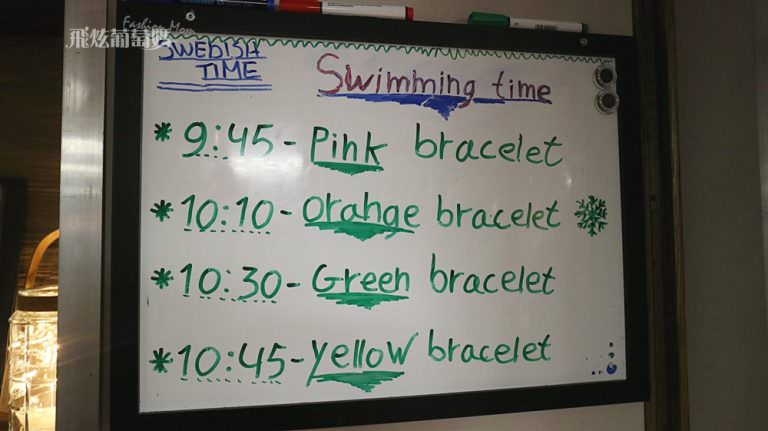 Fashion Mom
飛炫葡萄吧
SWEDISH
TIME
Swimming time
* 9:45 - Pink bracelet
* 10:10 - Orange bracelet
* 10:30 - Green bracelet
* 10:45 - Yellow bracelet